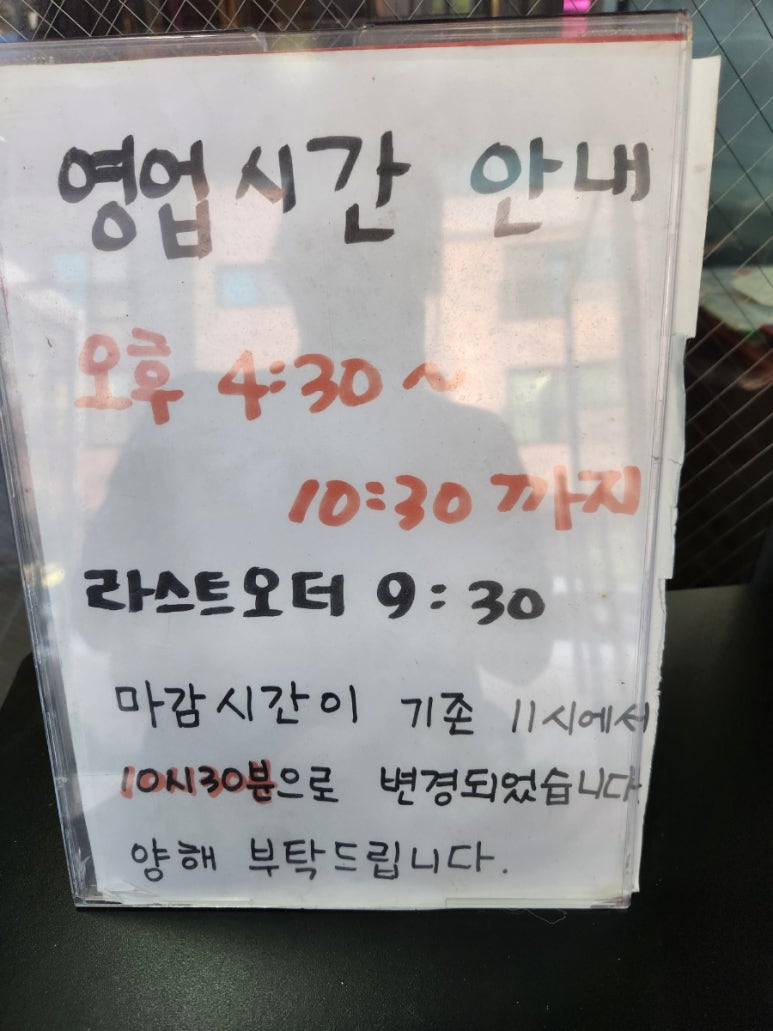 영업시간 안내
오후 4:30 ~
10:30 까지
라스트오더 9:30
마감시간이 기존 11시에서
10시30분으로 변경되었습니다
양해 부탁드립니다.